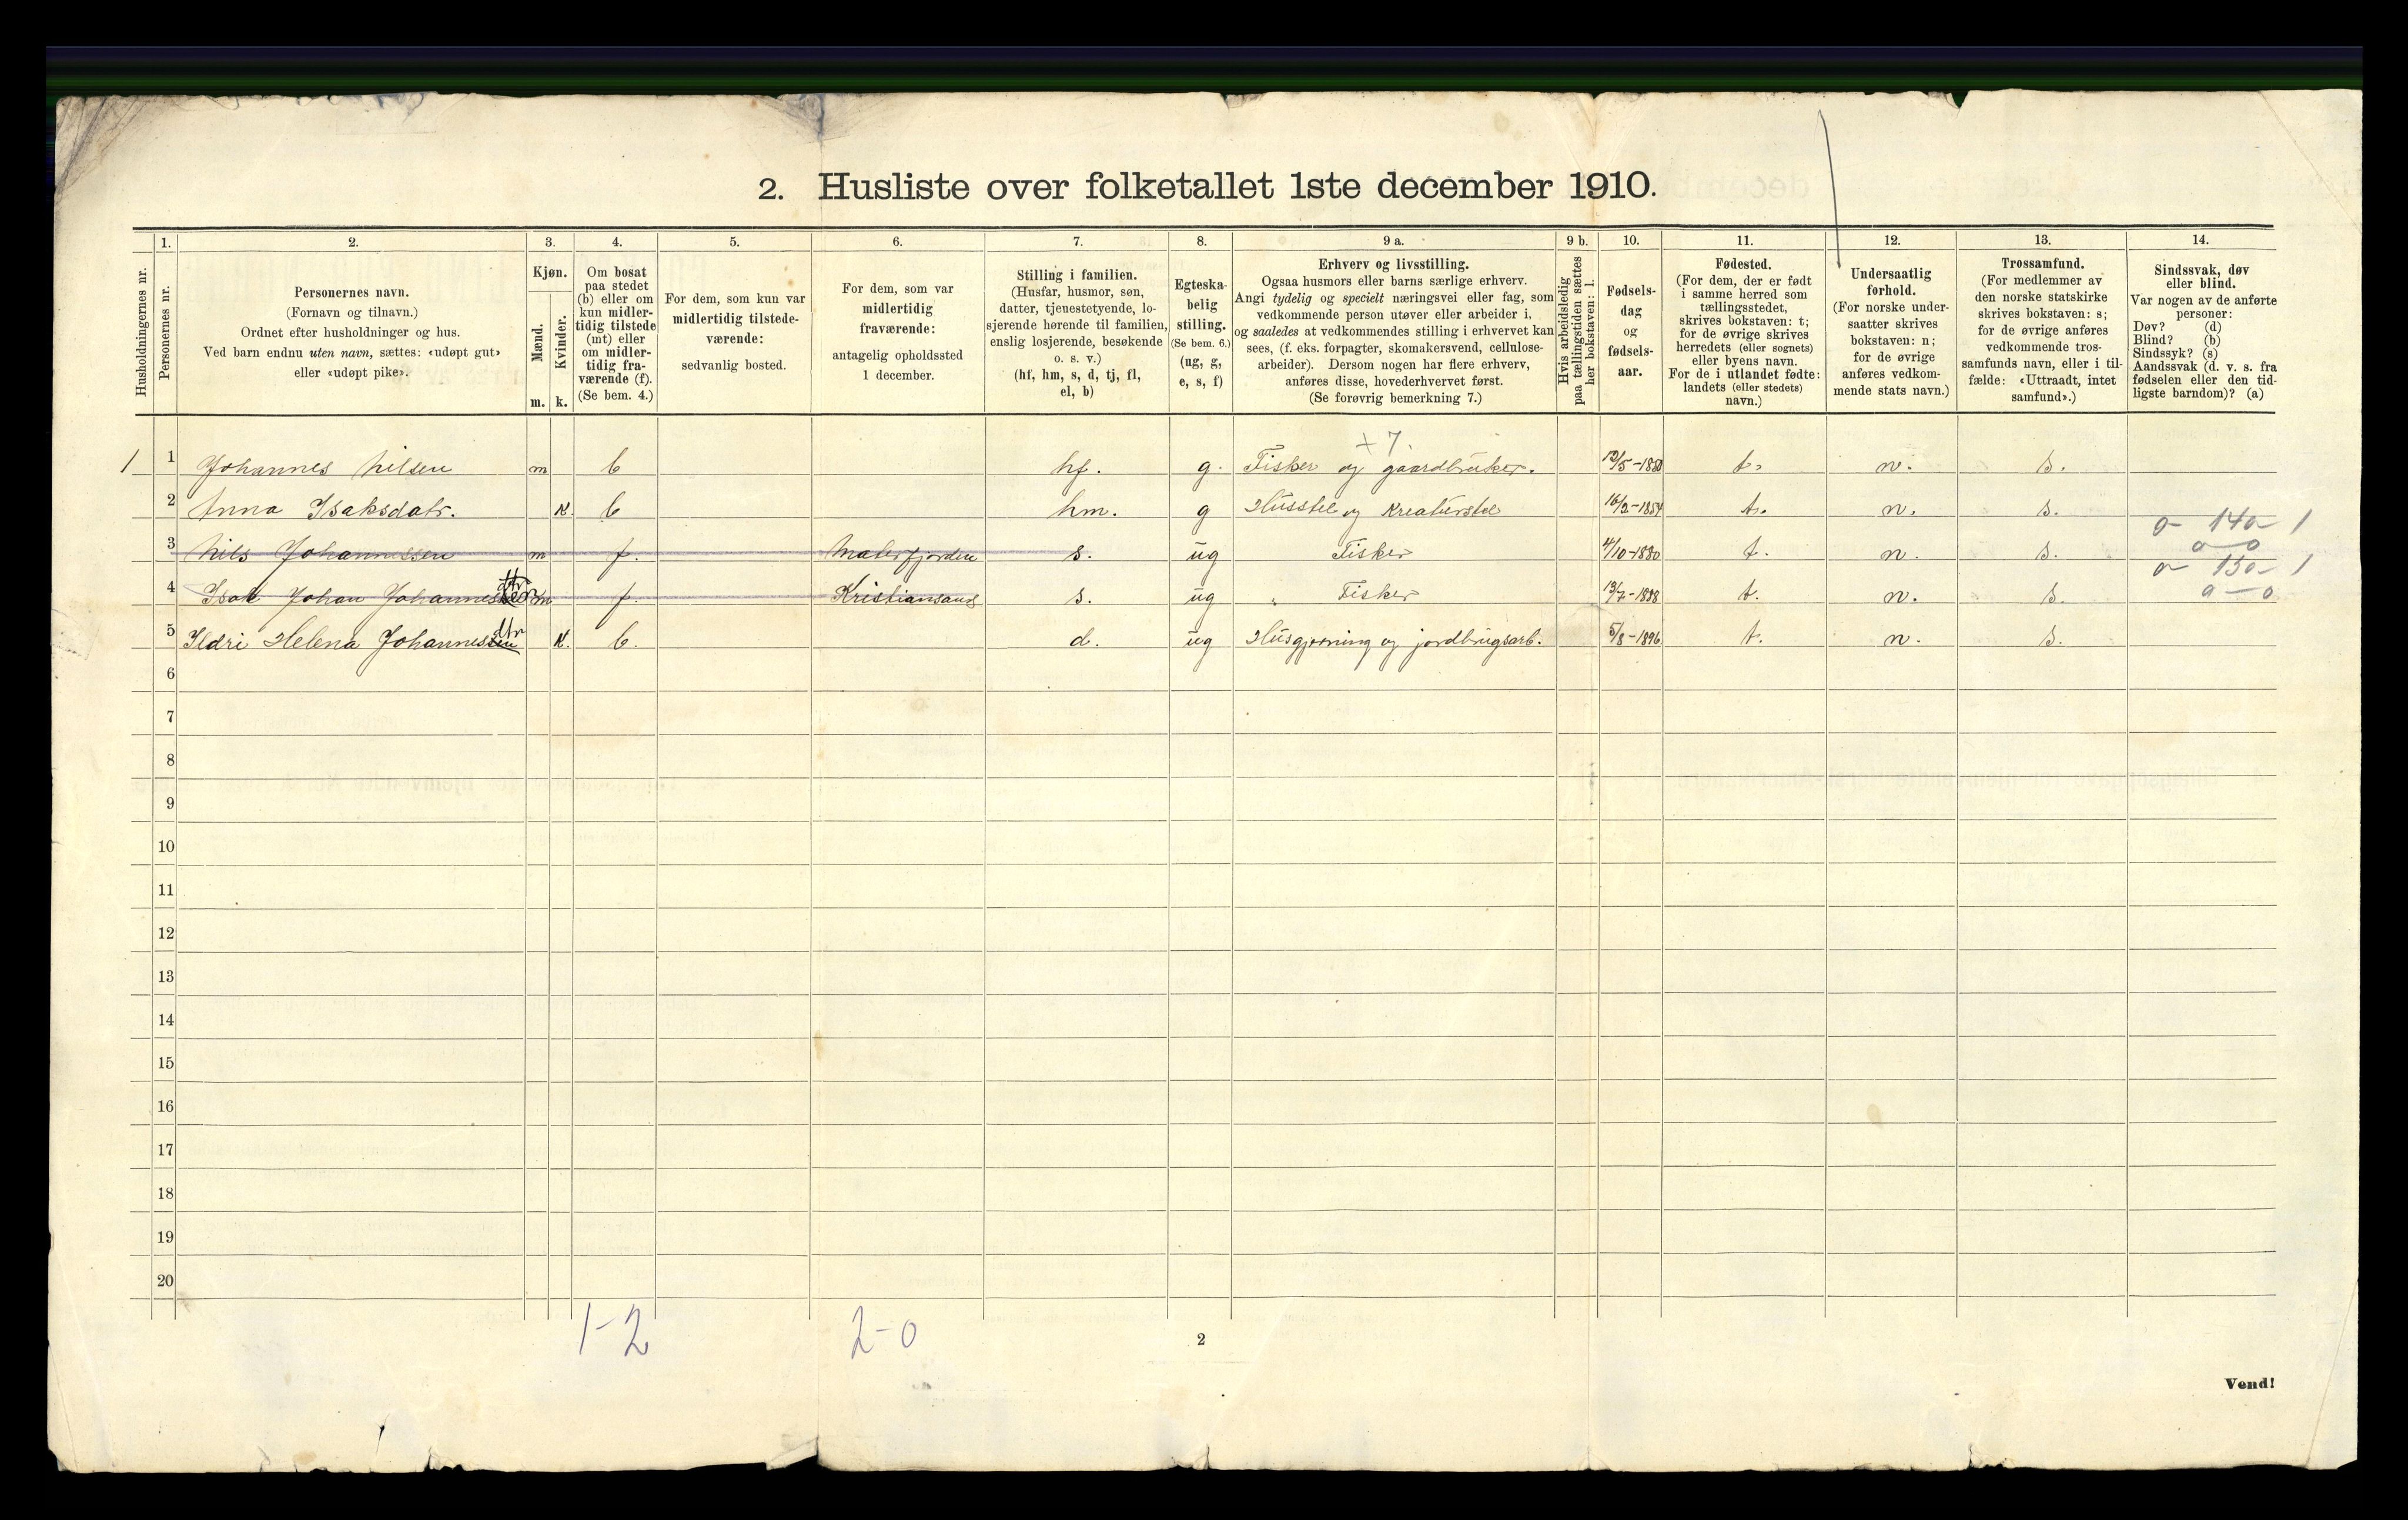 2. Husliste over folketallet 1ste december 1910.
1. 2. 3. 4. 5. 6. 7. 8. 9 a. 9 b. 10. 11. 12. 13. 14.
Husholdningernes nr.
Personernes nr.
Personernes navn.
(Fornavn og tilnavn.)
Ordnet efter husholdninger og hus.
Ved barn endnu uten navn, sættes: «udøpt gut»
eller «udøpt pike».
Kjøn.
Mænd.
Kvinder.
m. k.
Om bosat
paa stedet
(b) eller om
kun midler-
tidig tilstede
(mt) eller
om midler-
tidig fra-
værende (f).
(Se bem. 4.)
For dem, som kun var
midlertidig tilstede-
værende:
sedvanlig bosted.
For dem, som var
midlertidig
fraværende:
antagelig opholdssted
1 december.
Stilling i familien.
(Husfar, husmor, søn,
datter, tjenestetyende, lo-
sjerende hørende til familien,
enslig losjerende, besøkende
o. s. v.)
(hf, hm, s, d, tj, fl,
el, b)
Egteska-
belig
stilling.
(Se bem. 6.)
(ug, g,
e, s, f)
Erhverv og livsstilling.
Ogsaa husmors eller barns særlige erhverv.
Angi tydelig og specielt næringsvei eller fag, som
vedkommende person utøver eller arbeider i,
og saaledes at vedkommendes stilling i erhvervet kan
sees, (f. eks. forpagter, skomakersvend, cellulose-
arbeider). Dersom nogen har flere erhverv,
anføres disse, hovederhvervet først.
(Se forøvrig bemerkning 7.)
Hvis arbeidsledig
paa tællingstiden sættes
her bokstaven: l.
Fødsels-
dag
og
fødsels-
aar.
Fødested.
(For dem, der er født
i samme herred som
tællingsstedet,
skrives bokstaven: t;
for de øvrige skrives
herredets (eller sognets)
eller byens navn.
For de i utlandet fødte:
landets (eller stedets)
navn.)
Undersaatlig
forhold.
(For norske under-
saatter skrives
bokstaven: n;
for de øvrige
anføres vedkom-
mende stats navn.)
Trossamfund.
(For medlemmer av
den norske statskirke
skrives bokstaven: s;
for de øvrige anføres
vedkommende tros-
samfunds navn, eller i til-
fælde: «Uttraadt, intet
samfund».)
Sindssvak, døv
eller blind.
Var nogen av de anførte
personer:
Døv? (d)
Blind? (b)
Sindssyk? (s)
Aandssvak (d. v. s. fra
fødselen eller den tid-
ligste barndom)? (a)
+ 7.
1 1 Johannes Nilsen m b hf. g. Fisker og gaardbruker. t. n. s.
2 Anna Isaksdatr. k. b hm. g Husstel og Kreaturstel 16/2-1854 t. n. s.
0- 140- 1
3 Nils Johannessen m f. s. ug Fisker 4/10-1880 t. n. s. 0-0
0- 130- 1
4 Isak Johan Johannessen m f. Kristiansand s. ug " Fisker 13/7-1888 t. n. s. 0-0
5 Ildri Helena Johannesdtr k. b. d. ug Husgjerning og jordbrugsarb. 5/8-1896 t. n. s.
6
7
8
9
10
11
12
13
14
15
16
17
18
19
20
1-2 2-0
2
Vend!